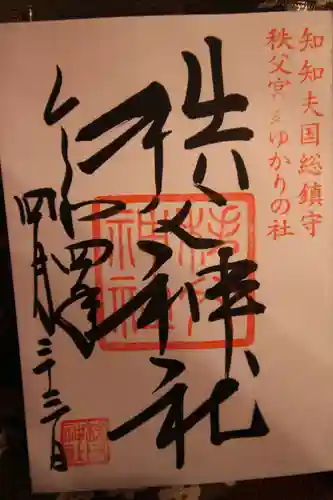 知知夫国総鎮守
秩父宮家ゆかりの社
秩父神社
令和四年
四月
秩父神社
秩父神社